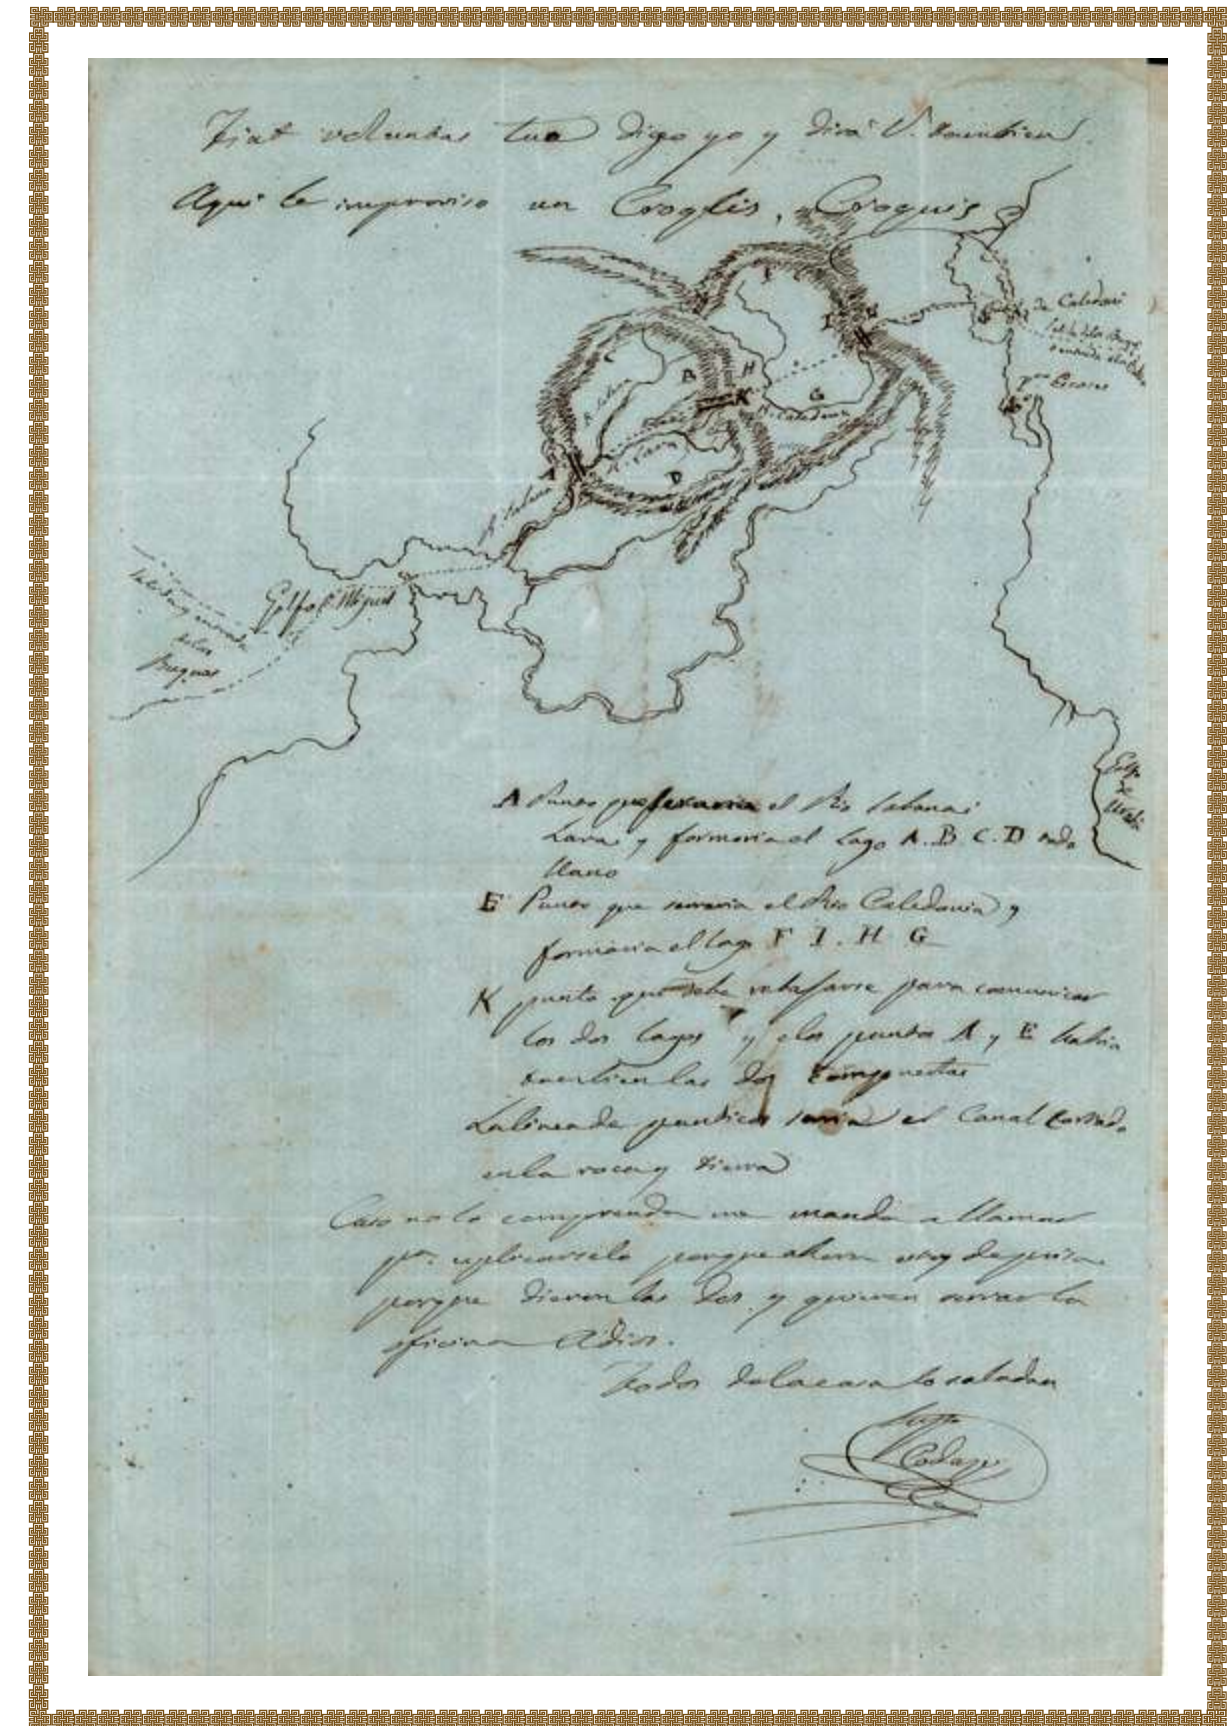 Fiat voluntas tua digo yo y dirá V. tambien
Aqui le improviso un Croqlis, Croquis
C
I
F
E
C
B
H
K
G
A
D
R. Sabana
R. Lara
R. Caledonia
R. Sabana
de Caledoni
pto Escoces
Golfo S. Miguel
Salida y entrada
de los
Buques
Golfo
de
Urabá
A Punto que serraria el Rio Sabana i
Lara y formaria el Lago A. B C. D todo
llano
E Punto que serraria el Rio Caledonia y
formaria el lago F I. H G
K punto que debe rebajarse para comunicar
los dos lagos y elos puntos A y E habria
tambien las dos compuertas
La linea de punticos seria el Canal cortado
en la roca y tierra
Caso no lo comprenda me manda a llamar
pa. esplicarselo porque ahora estoy de prisa
porque dieron las dos y quieren serrar la
oficina Adios.
Todos de la casa lo saludan
Codazzi